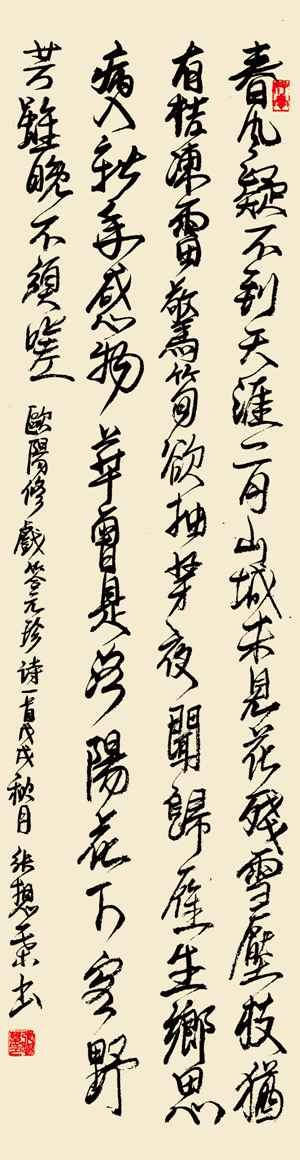 春風疑不到天涯二月山城未見花殘雪壓枝猶
有桔凍雷驚筍欲抽芽夜聞歸雁生鄉思
病入新年感物華曾是洛陽花下客野
芳雖晚不須嗟
歐陽修戲答元珍诗一首戊戌秋月 張想書